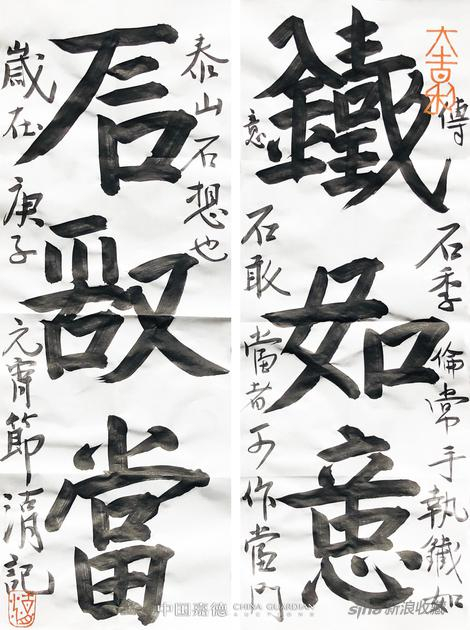 大吉利
傳石季倫常手執鐵如
鐵如意
意石敢當者可作當門
泰山石想也
石敢當
歲在庚子元宵節清記
中国嘉德 CHINA GUARDIAN
sina 新浪收藏